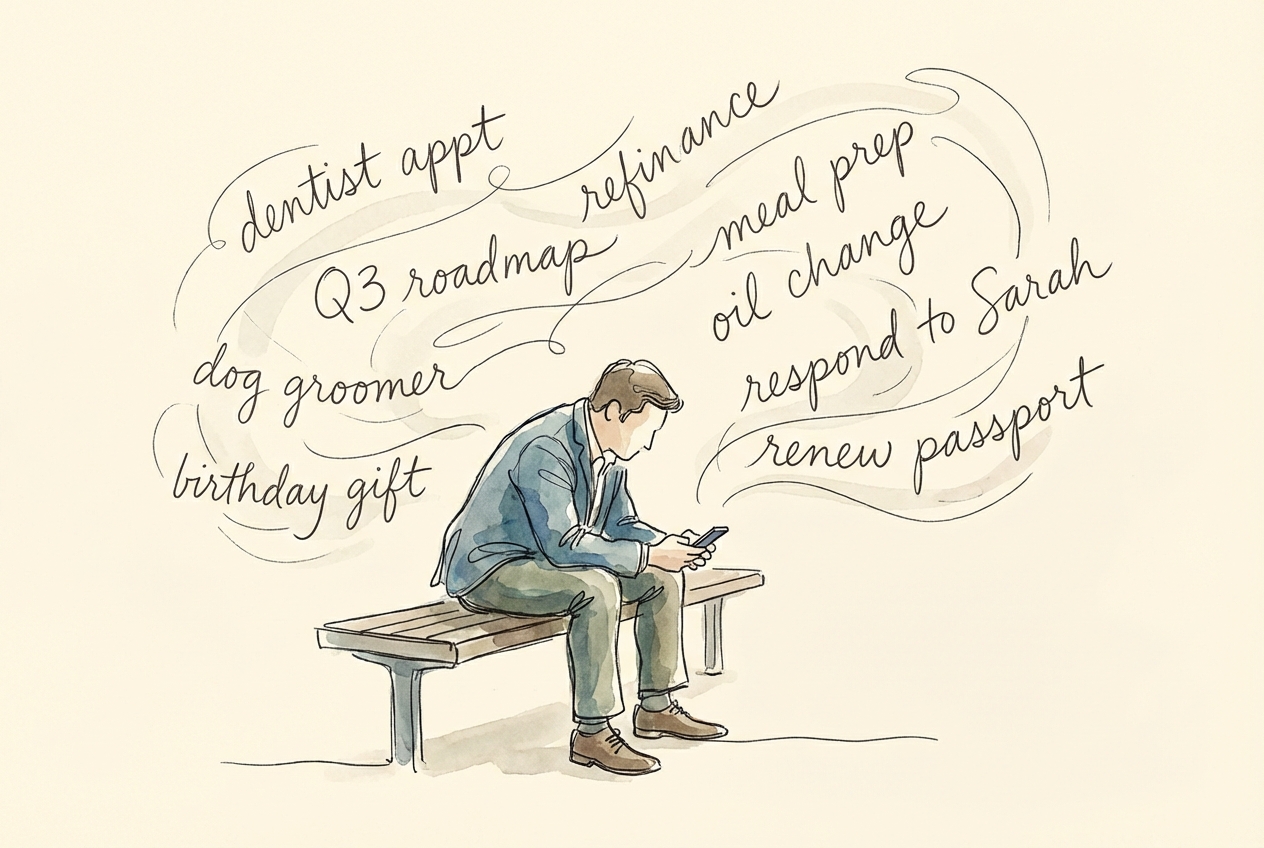 dentist appt
refinance
Q3 roadmap
meal prep
oil change
dog groomer
respond to Sarah
birthday gift
renew passport